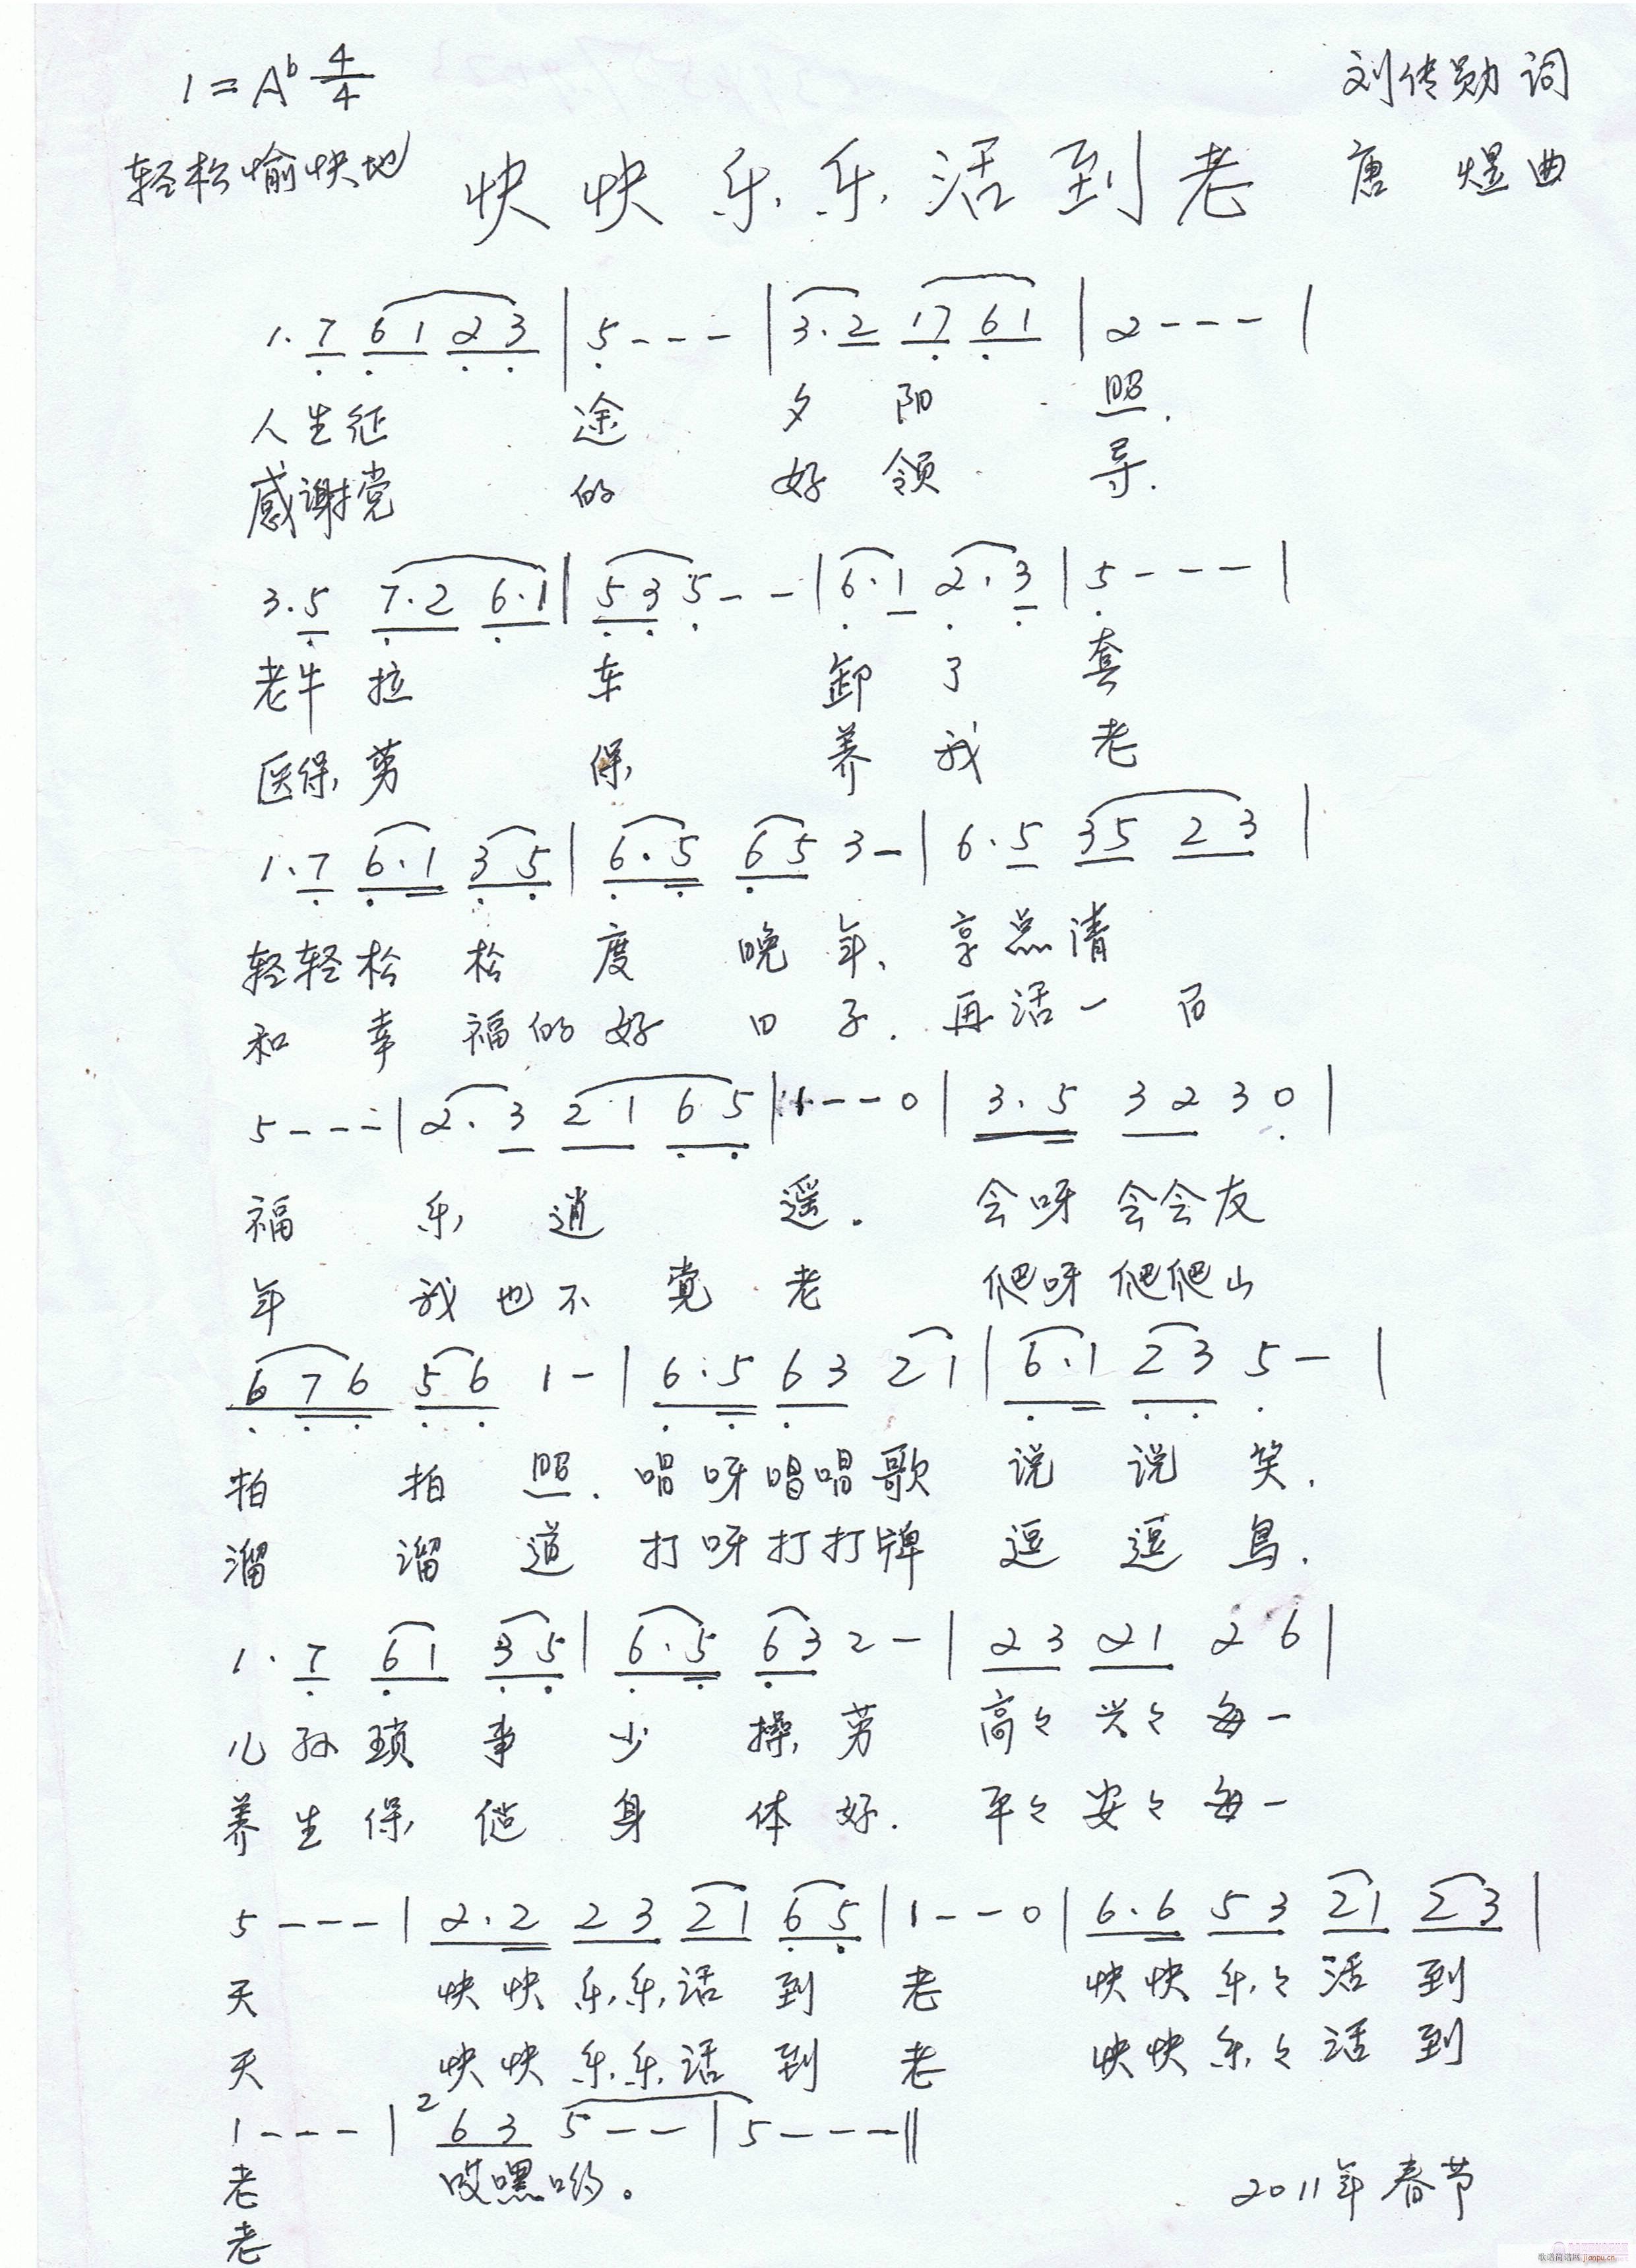 1=A♭ 4/4
刘传勋 词
轻松愉快地
快快乐乐活到老
唐 煜 曲
1. 7 6 1 2 3 | 5 - - - | 3. 2 1 7 6 1 | 2 - - - |
人生征 途 夕 阳 照.
感谢党 的 好 领 导.
3. 5 7. 2 6. 1 | 5 3 5 - - | 6. 1 2. 3 | 5 - - - |
老牛 拉 车 卸 了 套
医保, 劳 保, 养 我 老
1. 7 6. 1 3 5 | 6. 5 6 5 3 - | 6. 5 3 5 2 3 |
轻轻松 松 度 晚 年、 享点清
和 幸 福的好 日 子. 再活一 百
5 - - - | 2. 3 2 1 6 5 | 1 - - 0 | 3. 5 3 2 3 0 |
福 乐 逍 遥。 会呀 会会友
年 我也不 觉 老 爬呀 爬爬山
6 7 6 5 6 1 - | 6. 5 6 3 2 1 | 6. 1 2 3 5 - |
拍 拍 照. 唱呀唱唱歌 说 说 笑.
溜 溜 道 打呀打打牌 逗 逗 鸟.
1. 7 6 1 3 5 | 6. 5 6 3 2 - | 2 3 2 1 2 6 |
儿孙琐 事 少 操 劳 高々 兴々 每一
养生保 健 身 体 好. 平々 安々 每一
5 - - - | 2. 2 2 3 2 1 6 5 | 1 - - 0 | 6. 6 5 3 2 1 2 3 |
天 快快乐乐活 到 老 快快乐々 活 到
天 快快乐乐活 到 老 快快乐々 活 到
1 - - - | 2 6 3 5 - - | 5 - - - ‖
老 哎嘿哟。
2011年春节
老
歌谱简谱网 jianpu.cn